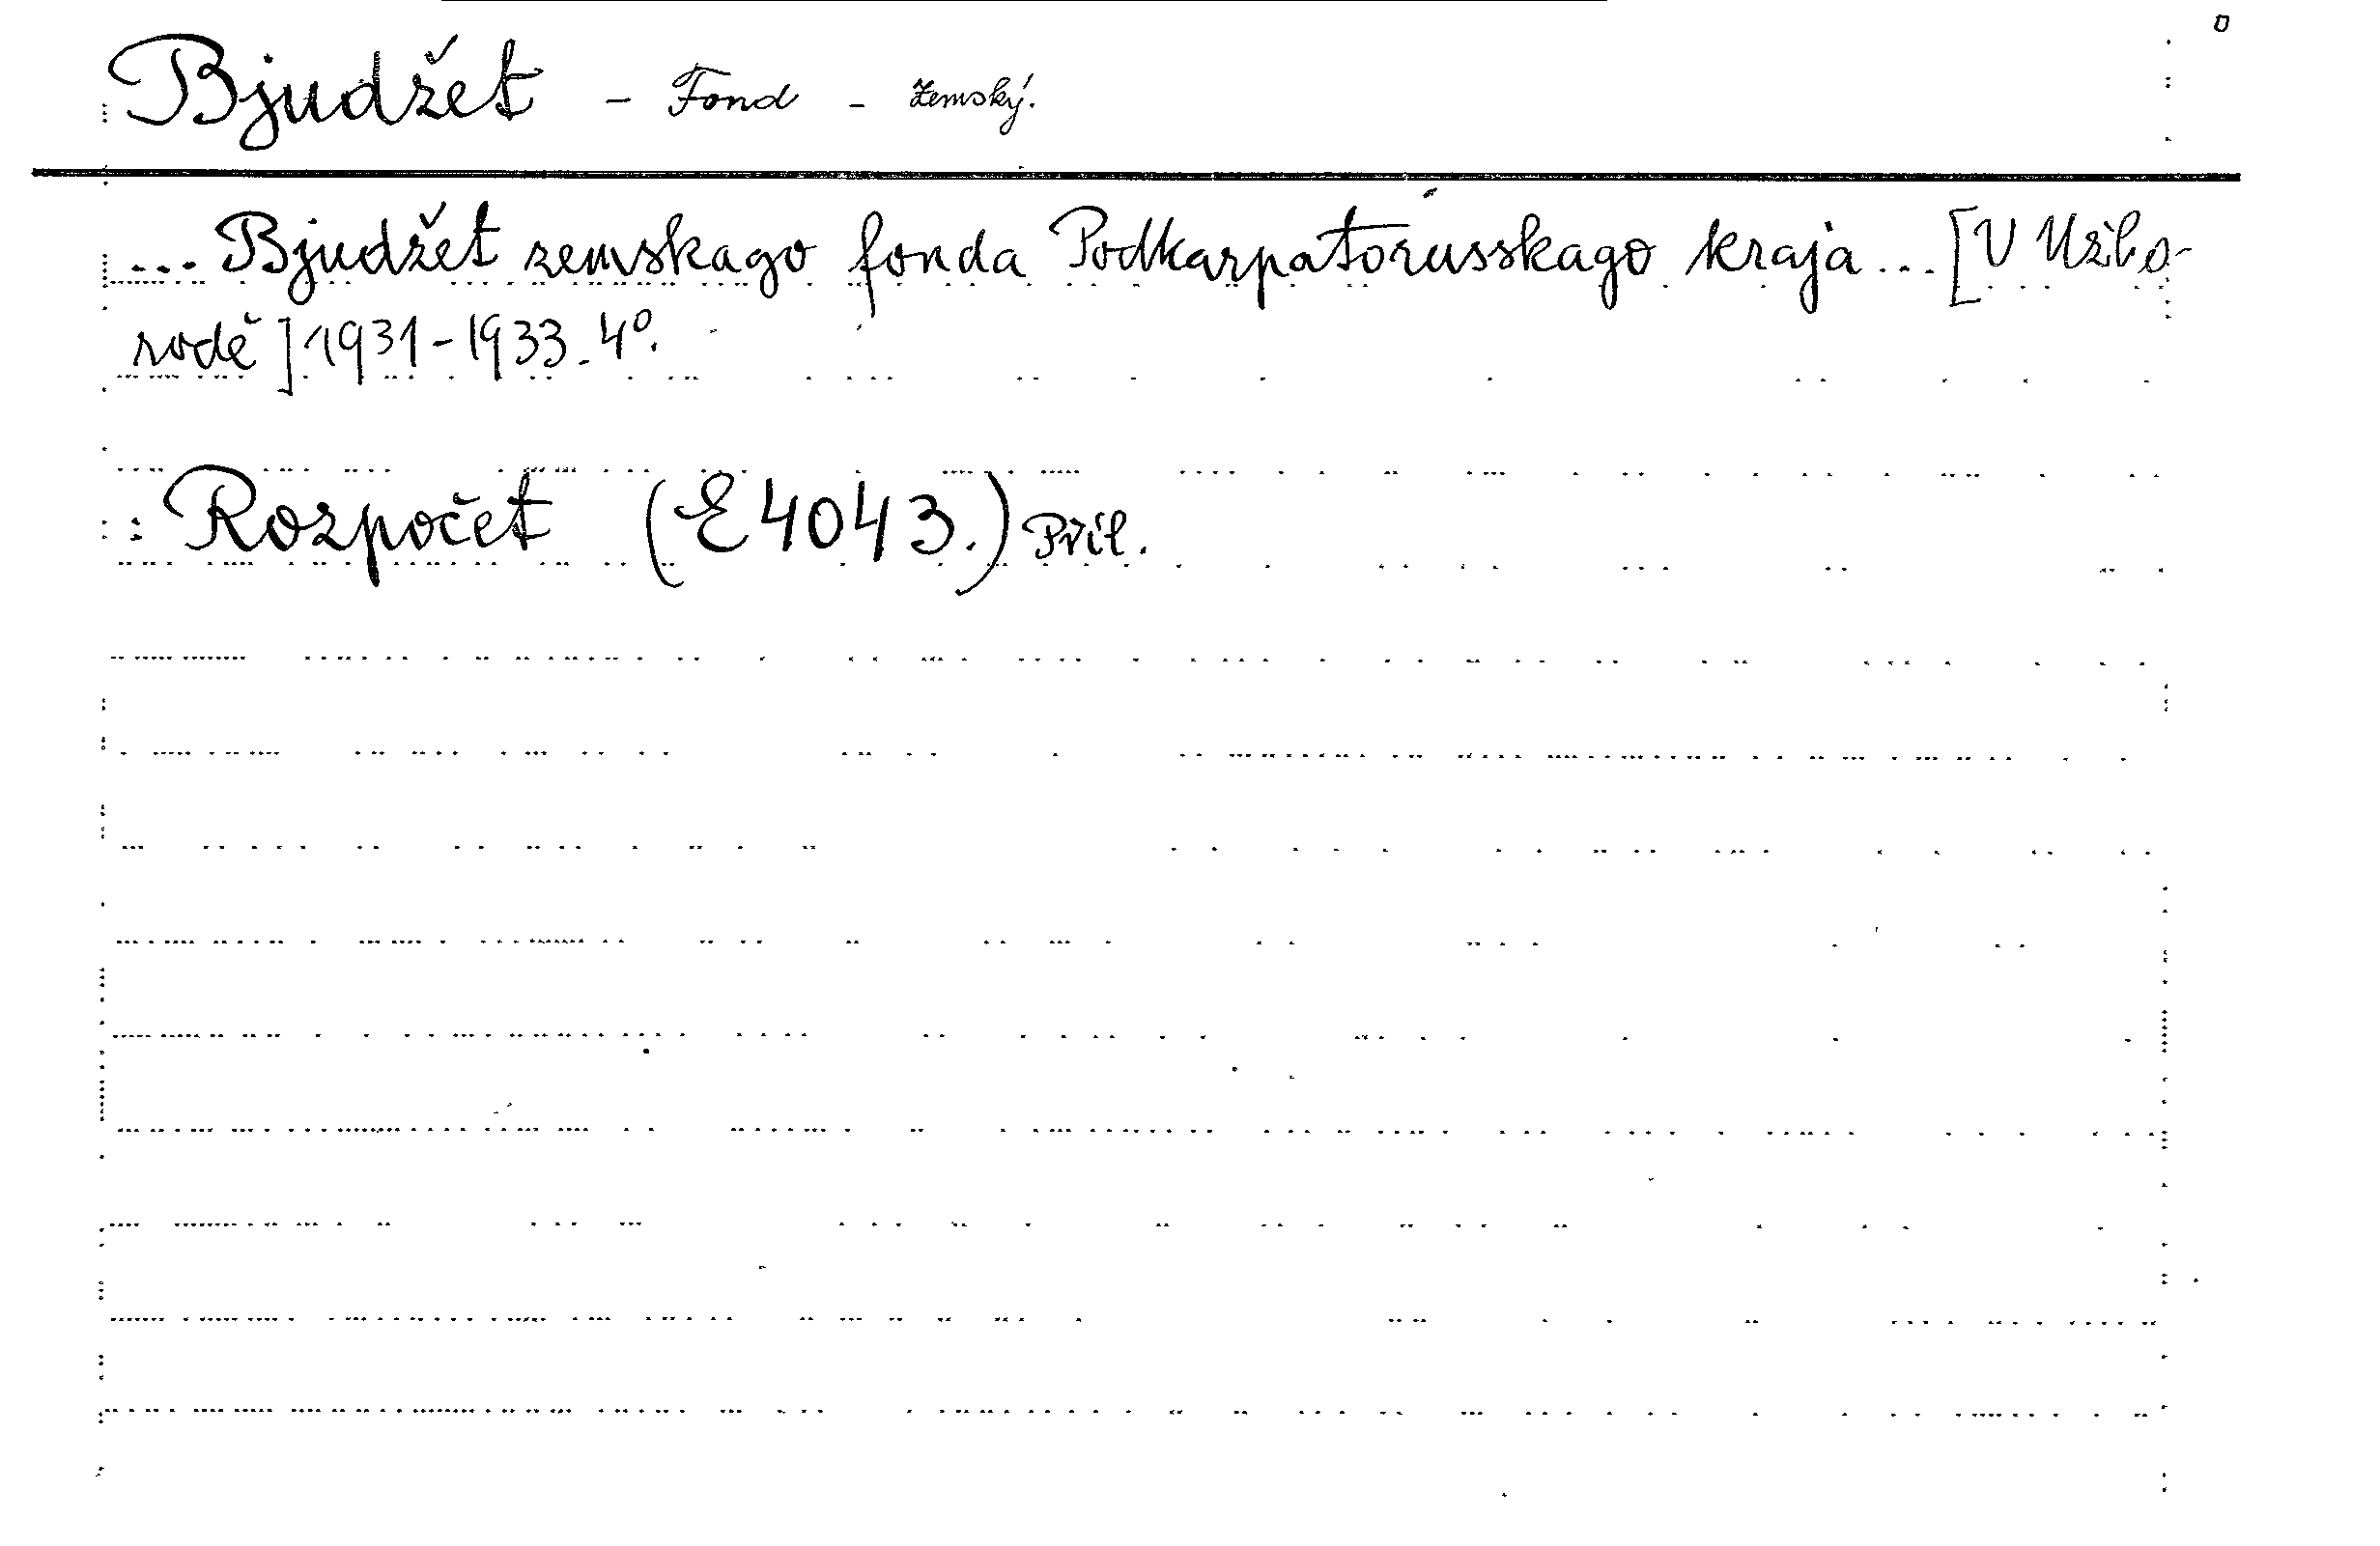 Bjudžet - Fond - Zemský.
... Bjudžet zemskago fonda Podkarpatorusskago kraja ... [V Užho-
rodě] 1931-1933. 4º.
Rozpočet (E 4043.) Příl.